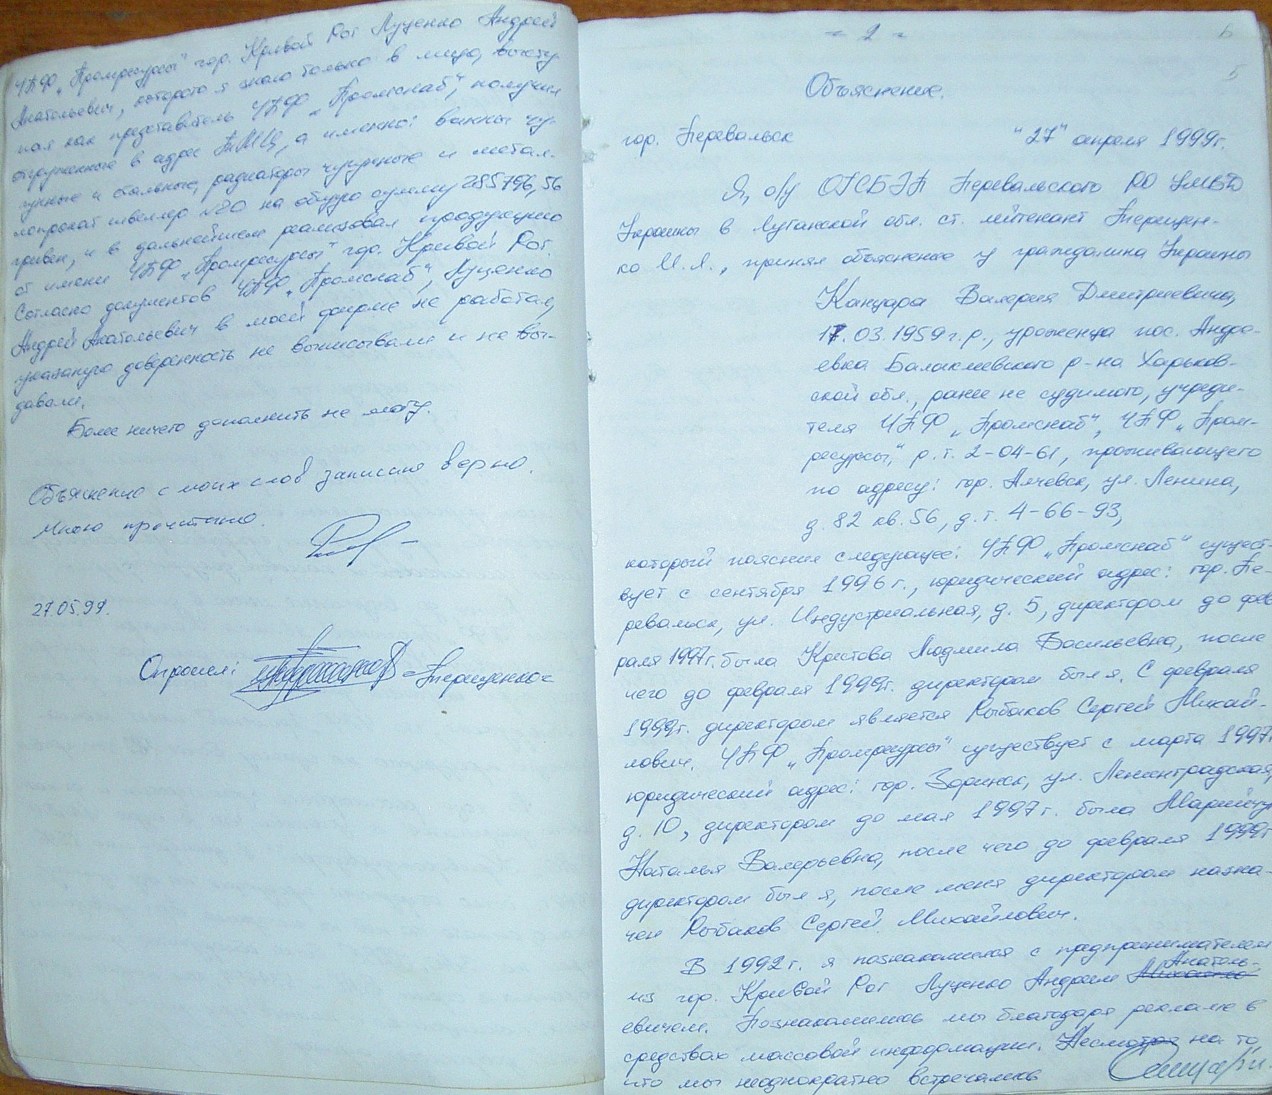 ЧПФ „Промресурсы" гор. Кривой Рог Луценко Андрей
Анатольевич, которого я знаю только в лицо, выступ
пая как представитель ЧПФ „Промснаб", получил
отгруженные в адрес а именно: ванны чу-
гунные и стальные, радиаторы чугунные и метал-
лопрокат швеллер №20 на общую сумму 285796,56
гривен, и в дальнейшем реализовал продукцию
от имени ЧПФ „Промресурсы" гор. Кривой Рог.
Согласно документов ЧПФ „Промснаб", Луценко
Андрей Анатольевич в моей фирме не работал,
указаную доверенность не выписывали и не вы-
давали.
Более ничего дополнить не могу.
Объяснение с моих слов записано верно.
Мною прочитано.
27.05.99.
Опросил: Терещенко
- 2 -
5
Объяснение.
гор. Перевальск "27" апреля 1999г.
Я, о/у ОГСБЭП Перевальского РО УМВД
Украины в Луганской обл. ст. лейтенант Терещен-
ко И.Л., принял объяснение у гражданина Украины
Канцара Валерия Дмитриевича,
17.03.1959г.р., уроженца пос. Андре-
евка Балаклеевского р-на Харьков-
ской обл., ранее не судимого, учреди-
теля ЧПФ „Промснаб", ЧПФ „Пром-
ресурсы", р.т. 2-04-61, проживающего
по адресу: гор. Алчевск, ул. Ленина,
д. 82 кв. 56, д.т. 4-66-93,
который пояснил следующее: ЧПФ „Промснаб" сущест-
вует с сентября 1996г., юридический адрес: гор. Пе-
ревальск, ул. Индустриальная, д. 5, директором до фев
раля 1997г. была Крестова Людмила Васильевна, после
чего до февраля 1999г. директором был я. С февраля
1999г. директором является Рыбаков Сергей Михай-
лович. ЧПФ „Промресурсы" существует с марта 1997г
юридический адрес: гор. Зоринск, ул. Ленинградская,
д. 10, директором до мая 1997г. была
Наталья Валерьевна, после чего до февраля 1999г
директором был я, после меня директором назна-
чен Рыбаков Сергей Михайлович.
В 1992г. я познакомился с предпринимателем
из гор. Кривой Рог Луценко Андреем Анатоль-
евичем. Познакомились мы благодаря рекламе в
средствах массовой информации. Несмотря на то,
что мы неоднократно встречались